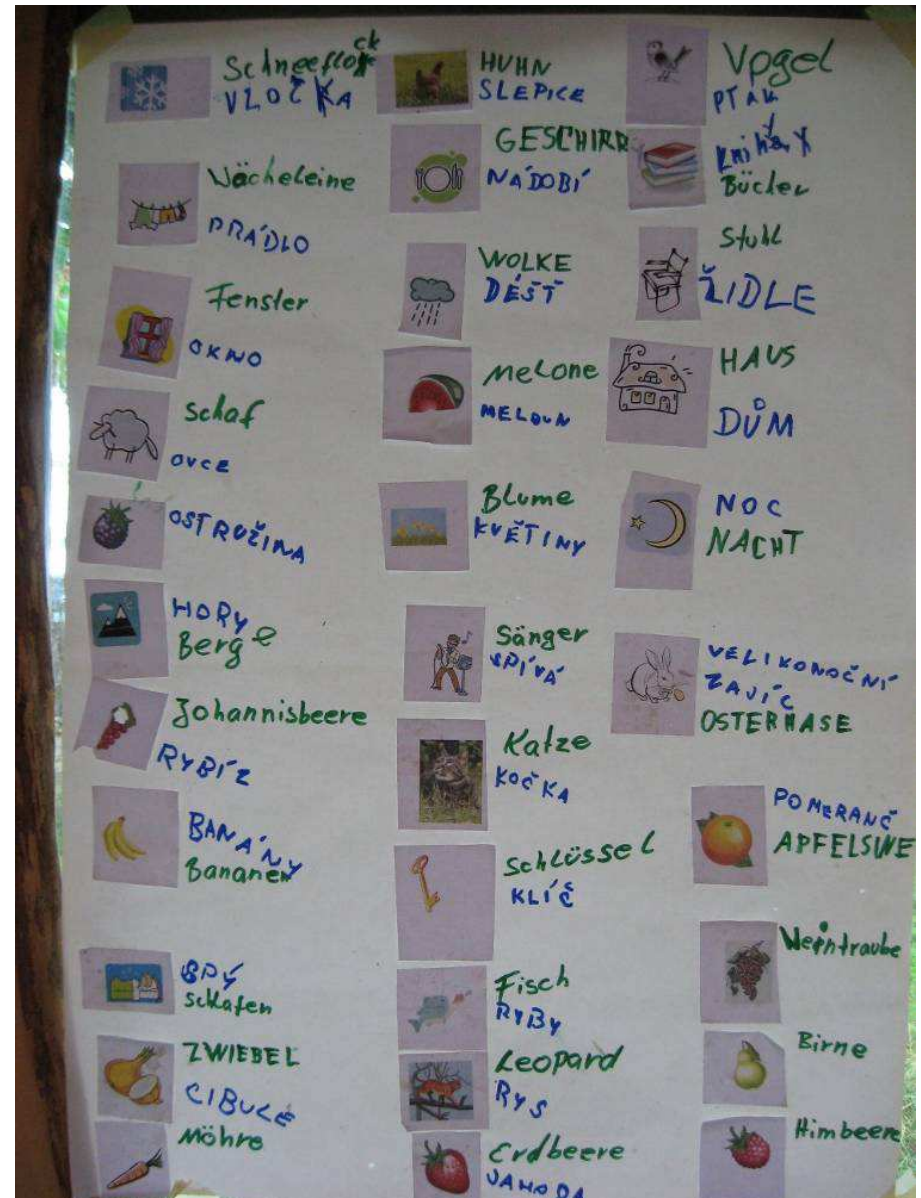 Schneeflock
VLOČKA
Wächeleine
PRÁDLO
Fenster
OKNO
Schaf
OVCE
OSTRUŽINA
HORY
Berge
Johannisbeere
RYBÍZ
BANÁNY
Bananen
SPÝ
schlafen
ZWIEBEL
CIBULE
Möhre
HUHN
SLEPICE
GESCHIRR
NÁDOBÍ
WOLKE
DÉŠŤ
Melone
MELOUN
Blume
KVĚTINY
Sänger
SPÍVÁ
Katze
KOČKA
Schlüssel
KLÍČ
Fisch
RYBY
Leopard
RYS
Erdbeere
JAHODA
Vogel
PTÁK
Bücher
Stuhl
ŽIDLE
HAUS
DŮM
NOC
NACHT
VELIKONOČNÍ
ZAJÍC
OSTERHASE
POMERANČ
APFELSINE
Weintraube
Birne
Himbeere